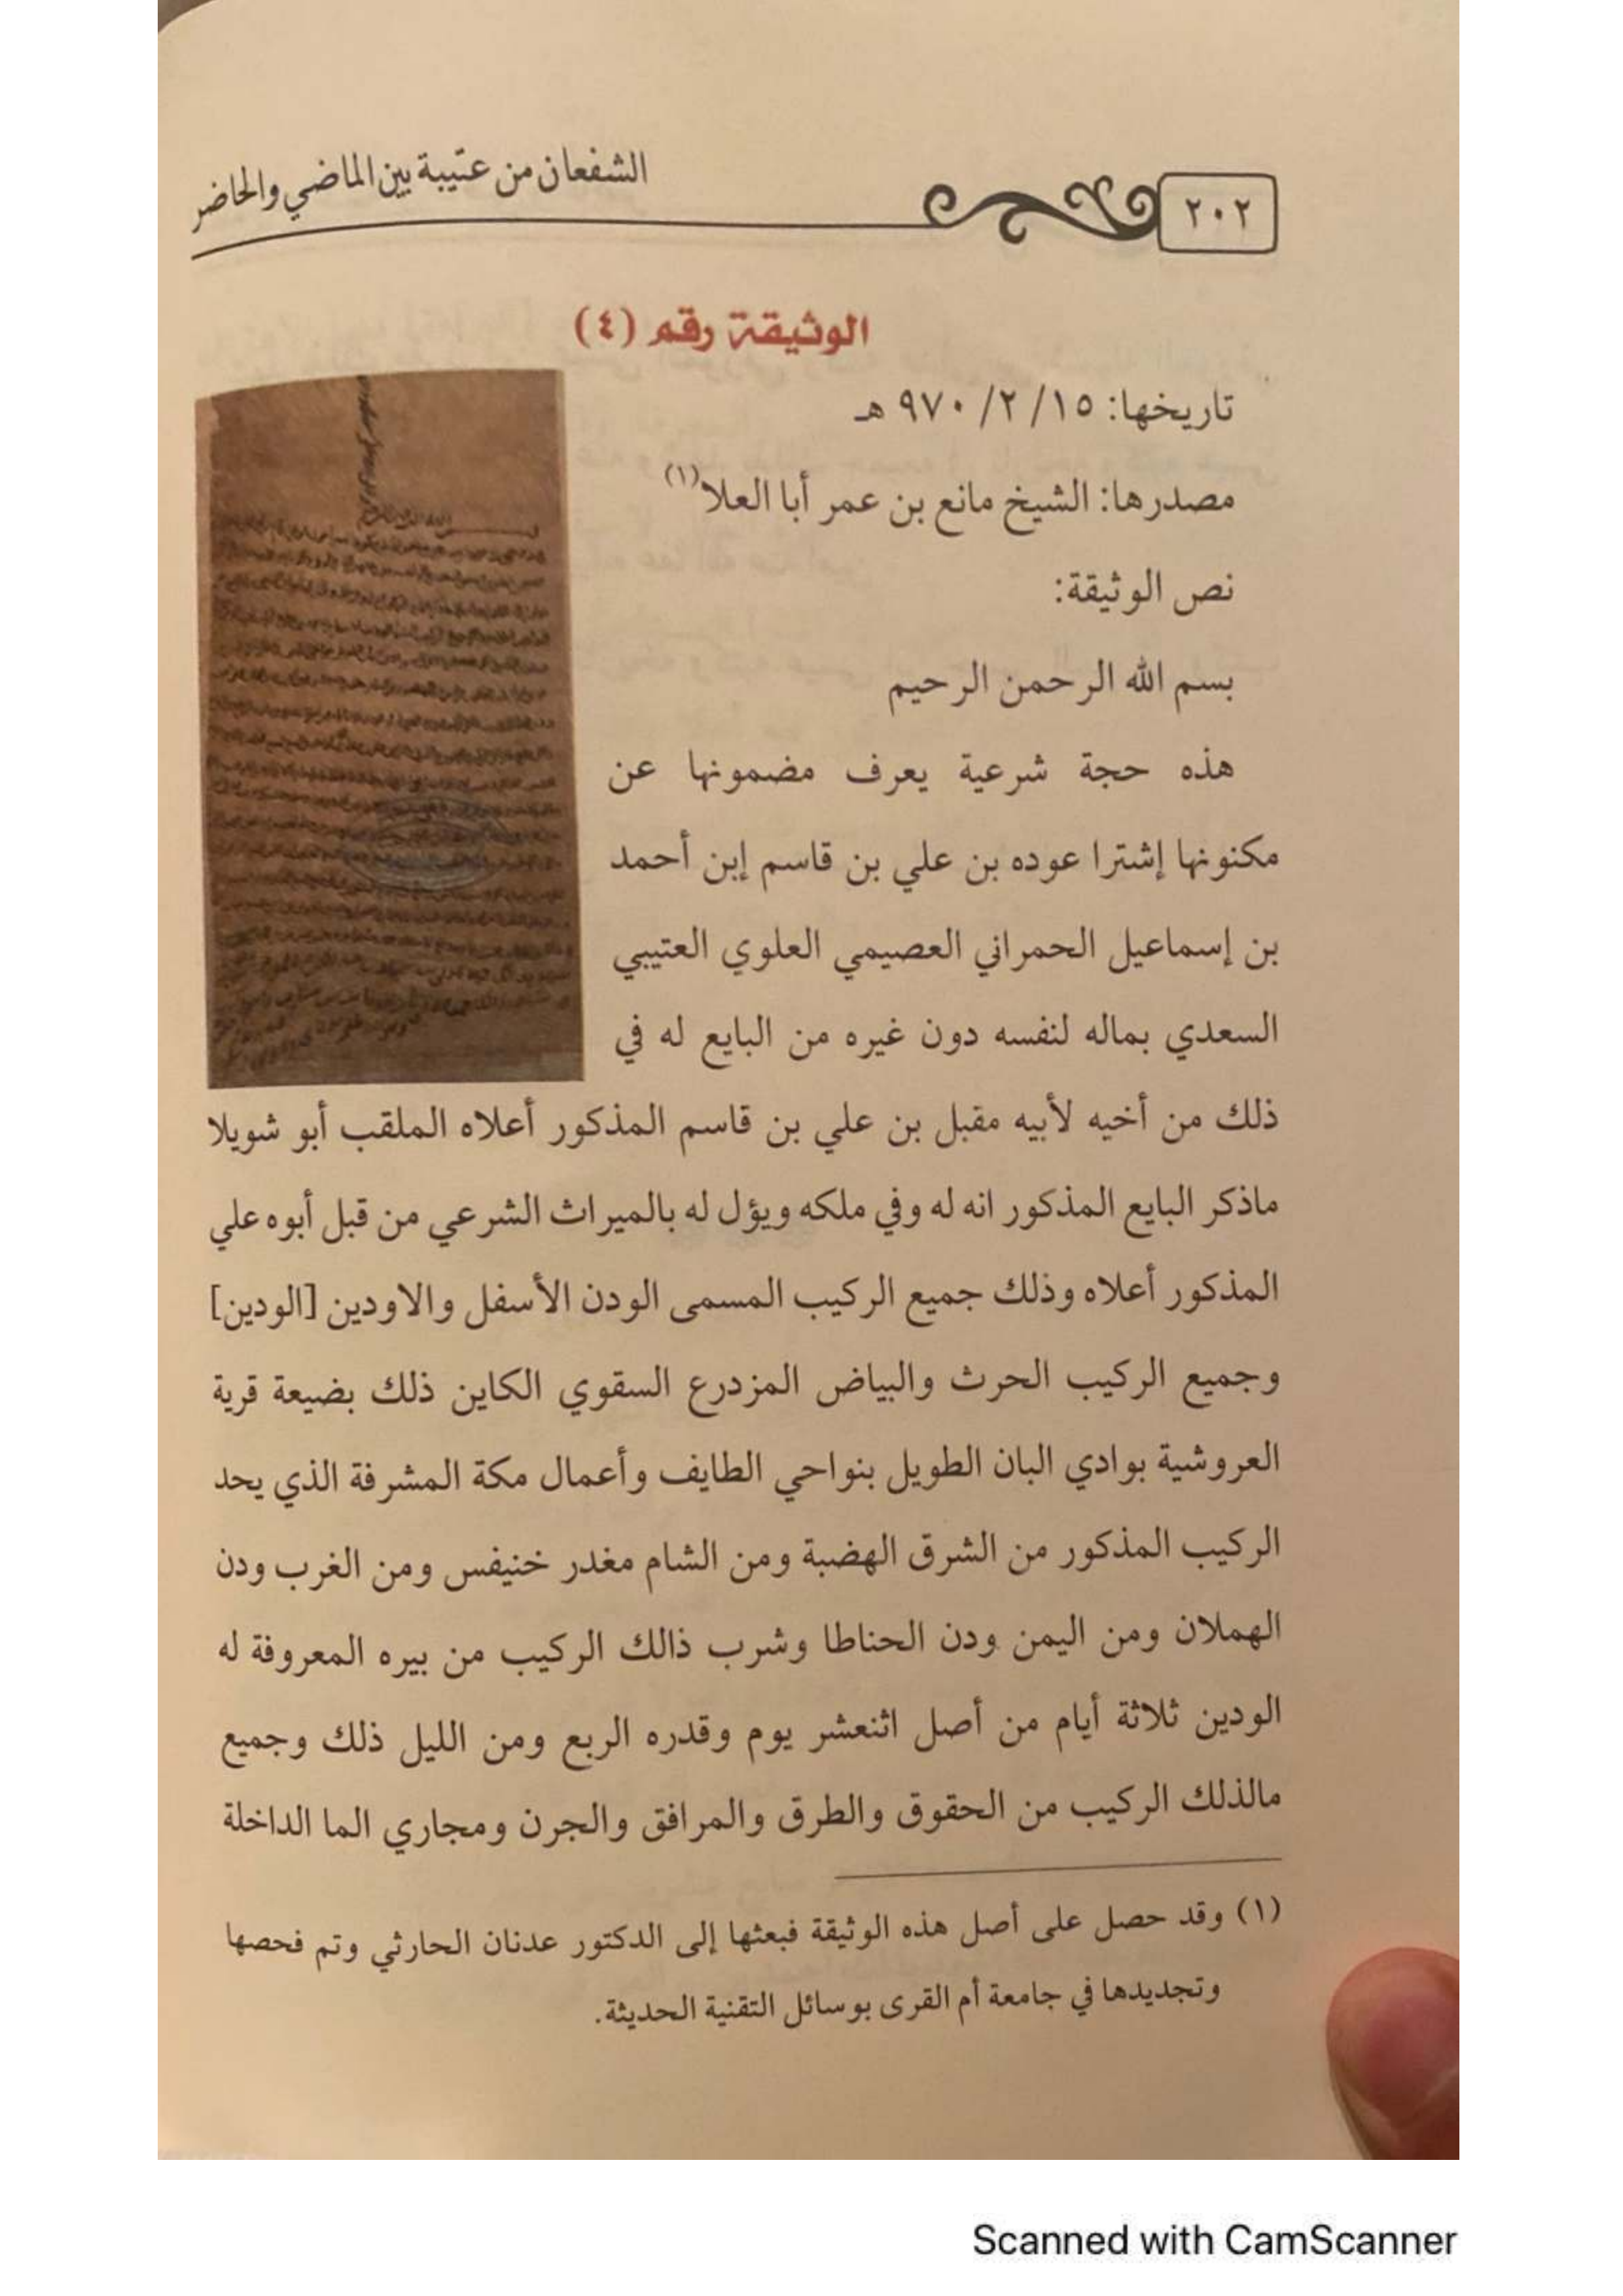 ٢٠٢
الشفعان من عتيبة بين الماضي والحاضر
الوثيقة رقم (٤)
تاريخها: ١٥/ ٢/ ٩٧٠ هـ
مصدرها: الشيخ مانع بن عمر أبا العلا(١)
نص الوثيقة:
بسم الله الرحمن الرحيم
هذه حجة شرعية يعرف مضمونها عن
مكنونها إشترا عوده بن علي بن قاسم إبن أحمد
بن إسماعيل الحمراني العصيمي العلوي العتيبي
السعدي بماله لنفسه دون غيره من البايع له في
ذلك من أخيه لأبيه مقبل بن علي بن قاسم المذكور أعلاه الملقب أبو شويلا
ماذكر البايع المذكور انه له وفي ملكه ويؤل له بالميراث الشرعي من قبل أبوه علي
المذكور أعلاه وذلك جميع الركيب المسمى الودن الأسفل والاودين [الودين]
وجميع الركيب الحرث والبياض المزدرع السقوي الكاين ذلك بضيعة قرية
العروشية بوادي البان الطويل بنواحي الطايف وأعمال مكة المشرفة الذي يحد
الركيب المذكور من الشرق الهضبة ومن الشام مغدر خنيفس ومن الغرب ودن
الهملان ومن اليمن ودن الحناطا وشرب ذالك الركيب من بيره المعروفة له
الودين ثلاثة أيام من أصل اثنعشر يوم وقدره الربع ومن الليل ذلك وجميع
مالذلك الركيب من الحقوق والطرق والمرافق والجرن ومجاري الما الداخلة
(١) وقد حصل على أصل هذه الوثيقة فبعثها إلى الدكتور عدنان الحارثي وتم فحصها
وتجديدها في جامعة أم القرى بوسائل التقنية الحديثة.
Scanned with CamScanner